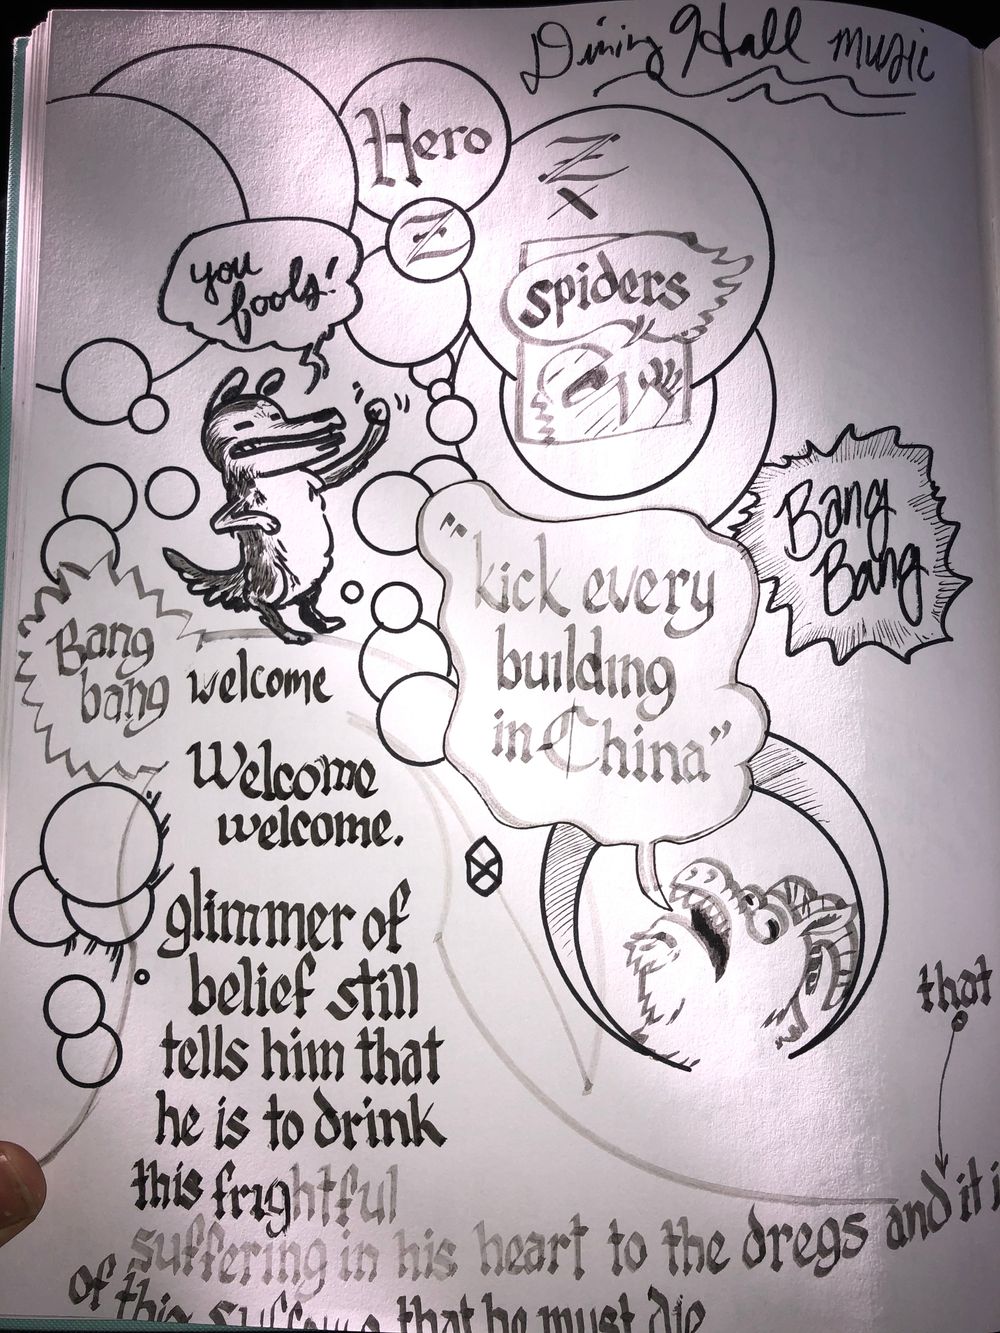 Dining Hall music
Hero
Z
Z
X
you
fools!
spiders
"kick every
building
in China"
Bang
Bang
Bang
bang
welcome
Welcome
welcome.
glimmer of
belief still
tells him that
he is to drink
this frightful
suffering in his heart to the dregs and it i
that
of this that he must die